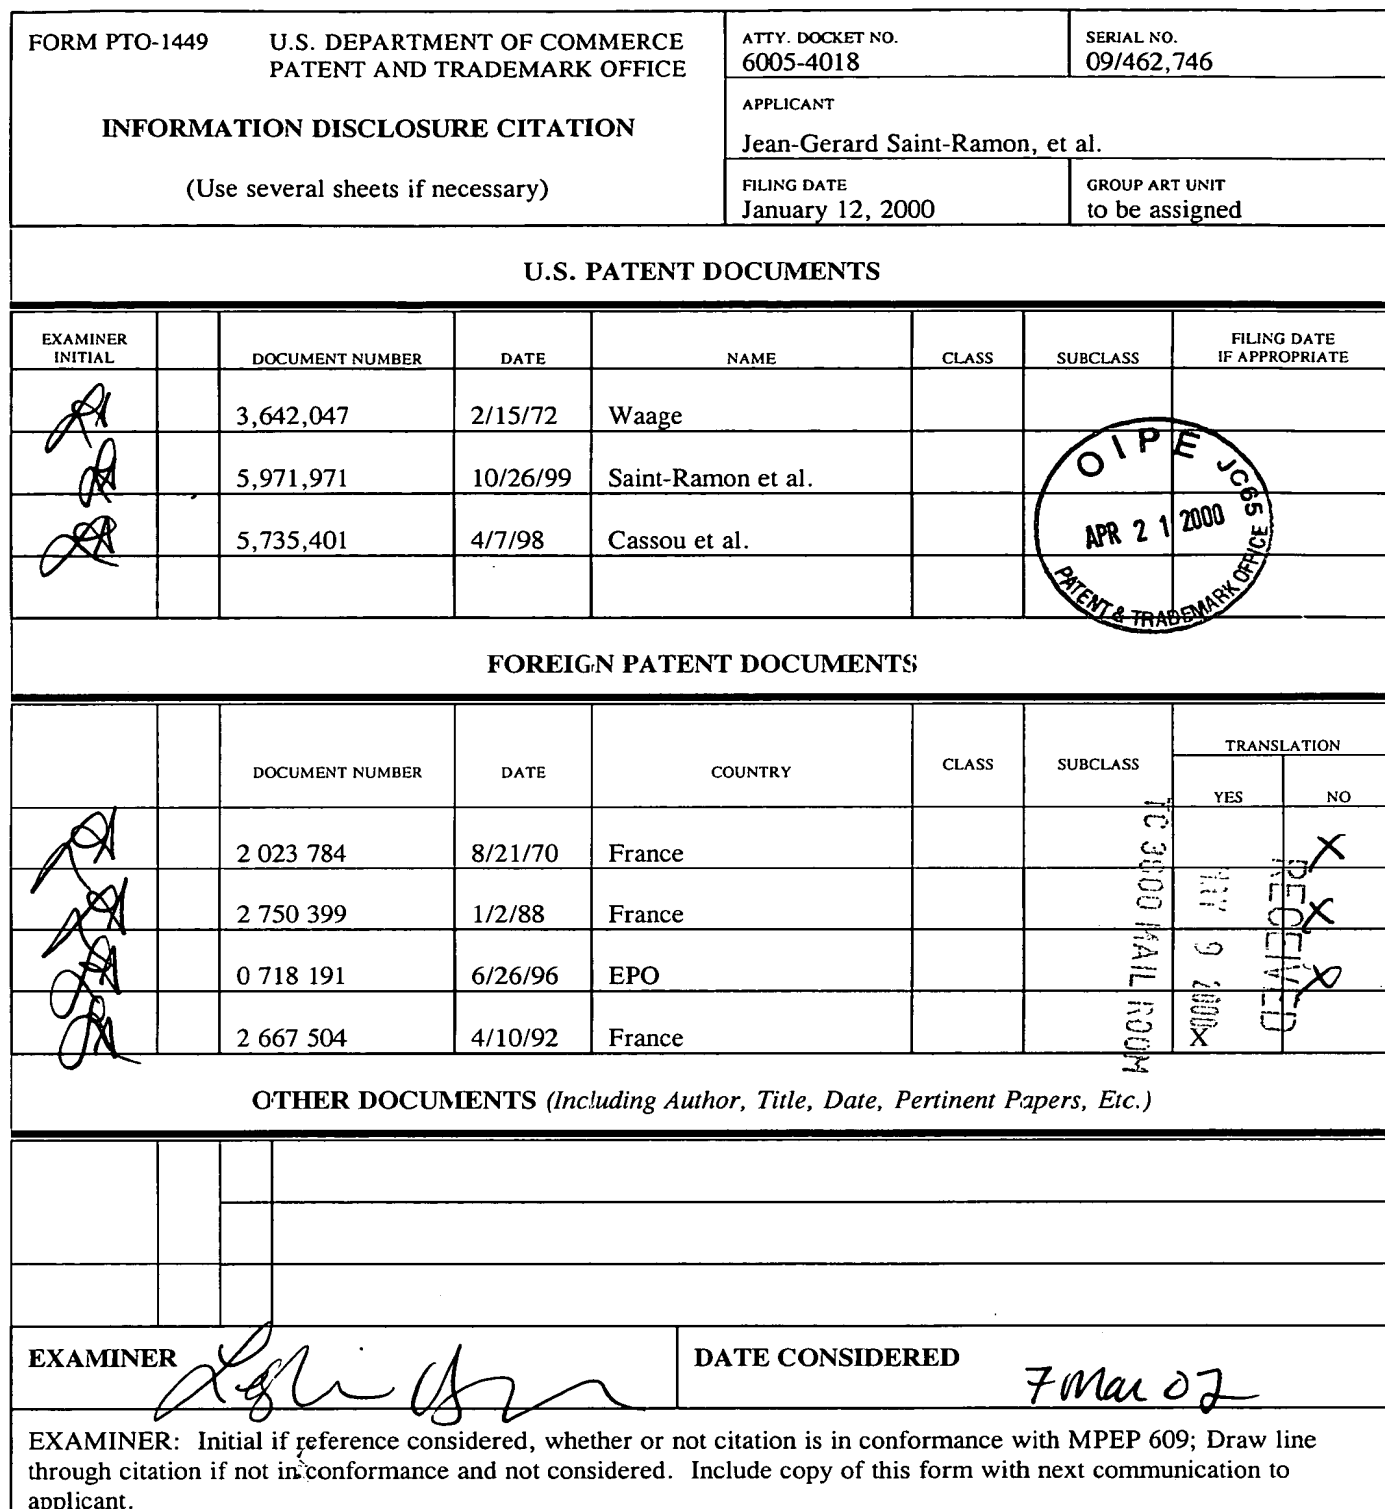 FORM PTO-1449 U.S. DEPARTMENT OF COMMERCE
PATENT AND TRADEMARK OFFICE
INFORMATION DISCLOSURE CITATION
(Use several sheets if necessary)
ATTY. DOCKET NO.
6005-4018
SERIAL NO.
09/462,746
APPLICANT
Jean-Gerard Saint-Ramon, et al.
FILING DATE
January 12, 2000
GROUP ART UNIT
to be assigned
U.S. PATENT DOCUMENTS
EXAMINER
INITIAL
DOCUMENT NUMBER DATE NAME CLASS SUBCLASS
FILING DATE
IF APPROPRIATE
3,642,047 2/15/72 Waage
5,971,971 10/26/99 Saint-Ramon et al.
5,735,401 4/7/98 Cassou et al.
OIPE JC65
APR 21 2000
PATENT & TRADEMARK OFFICE
FOREIGN PATENT DOCUMENTS
DOCUMENT NUMBER DATE COUNTRY CLASS SUBCLASS
TRANSLATION
YES NO
2 023 784 8/21/70 France X
2 750 399 1/2/88 France X
0 718 191 6/26/96 EPO X
2 667 504 4/10/92 France X
RECEIVED
MAY 9 2000
TC 3600 MAIL ROOM
OTHER DOCUMENTS (Including Author, Title, Date, Pertinent Papers, Etc.)
EXAMINER
DATE CONSIDERED 7 Mar 02
EXAMINER: Initial if reference considered, whether or not citation is in conformance with MPEP 609; Draw line
through citation if not in conformance and not considered. Include copy of this form with next communication to
applicant.